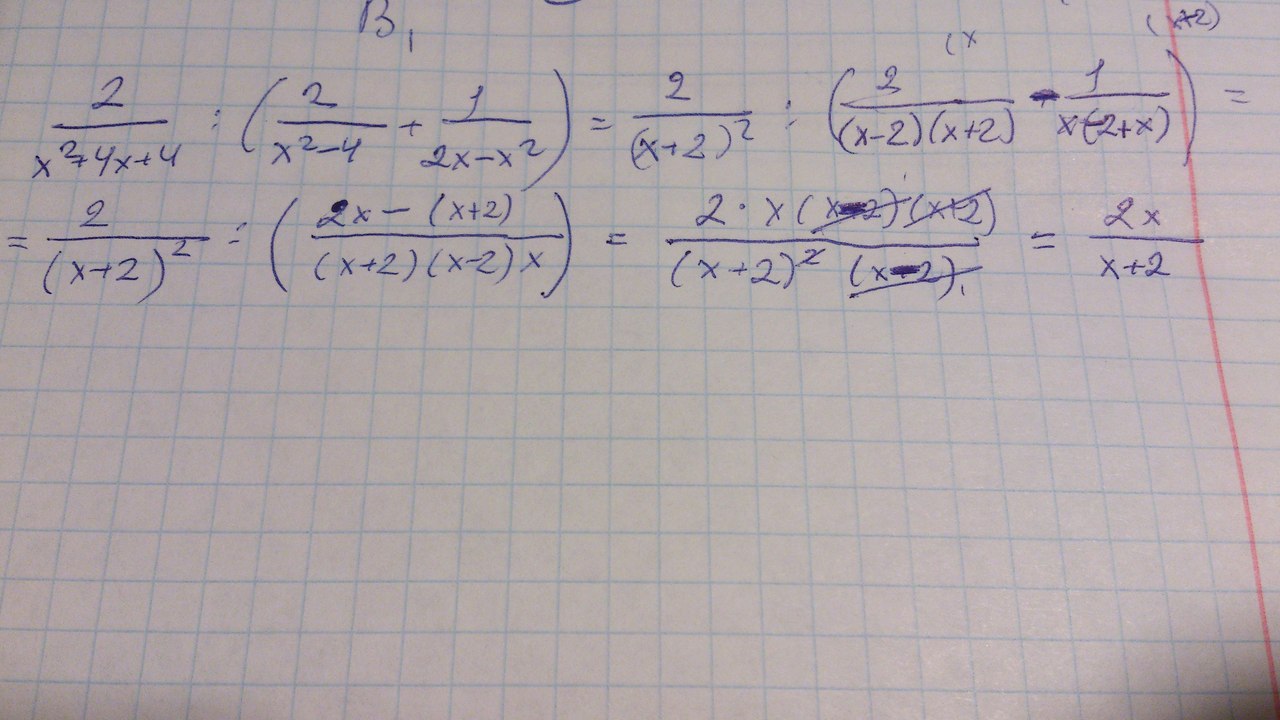 B₁
(x
(x+2)
2/(x²+4x+4) : (2/(x²-4) + 1/(2x-x²)) = 2/(x+2)² : (2/((x-2)(x+2)) - 1/(x(-2+x))) =
= 2/(x+2)² : ((2x-(x+2))/((x+2)(x-2)x)) = (2·x(x-2)(x+2))/((x+2)²(x-2)) = 2x/(x+2)